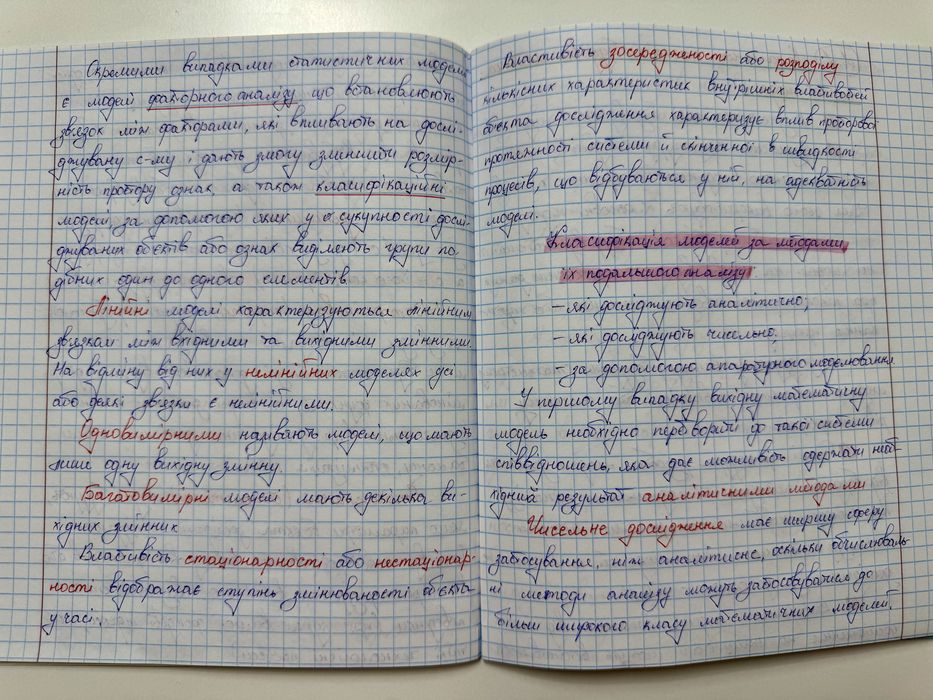 Окремими випадками статистичних моделей
є моделі факторного аналізу що встановлюють
зв'язок між факторами, які впливають на дослі-
джувану с-му і дають змогу зменшити розмір-
ність простору ознак, а також класифікаційні
моделі, за допомогою яких у сукупності дослі-
джуваних об'єктів або ознак виділяють групи по-
дібних один до одного елементів.
Лінійні моделі характеризуються лінійним
зв'язком між вхідними та вихідними змінними.
На відміну від них у нелінійних моделях усі
або деякі зв'язки є нелінійними.
Одновимірними називають моделі, що мають
лише одну вихідну змінну.
Багатовимірні моделі мають декілька ви-
хідних змінних
Властивість стаціонарності або нестаціонар-
ності відображає ступінь змінюваності об'єкта
у часі.
Властивість зосередженості або розподілу
кількісних характеристик внутрішніх властивостей
об'єкта дослідження характеризує вплив просторової
протяжності системи й скінченної в швидкості
процесів, що відбуваються у ній, на адекватність
моделі.
Класифікація моделей за методами
їх подальшого аналізу
- які досліджують аналітично;
- які досліджують чисельно;
- за допомогою апаратурного моделювання
У першому випадку вихідну математичну
модель необхідно перетворити до такої системи
співвідношень, яка дає можливість одержати необ-
хідний результат аналітичними методами
Чисельне дослідження має ширшу сферу
застосування, ніж аналітичне, оскільки обчислюваль-
ні методи аналізу можуть застосовуватися до
більш широкого класу математичних моделей.